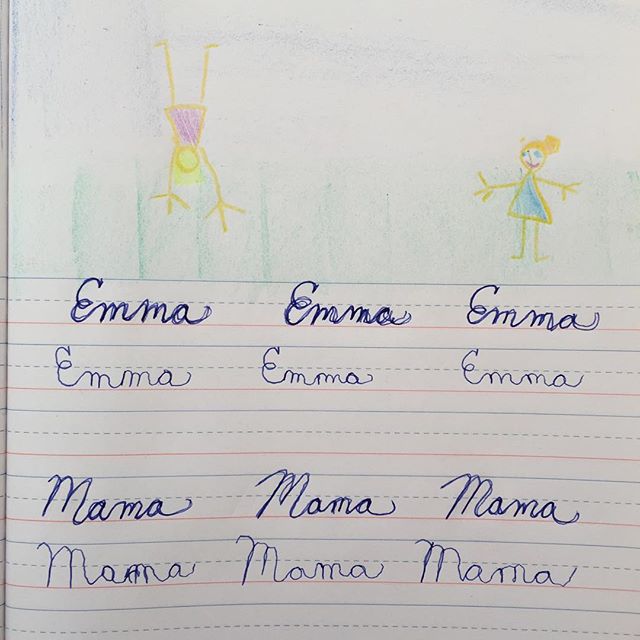 Emma Emma Emma
Emma Emma Emma
Mama Mama Mama
Mama Mama Mama